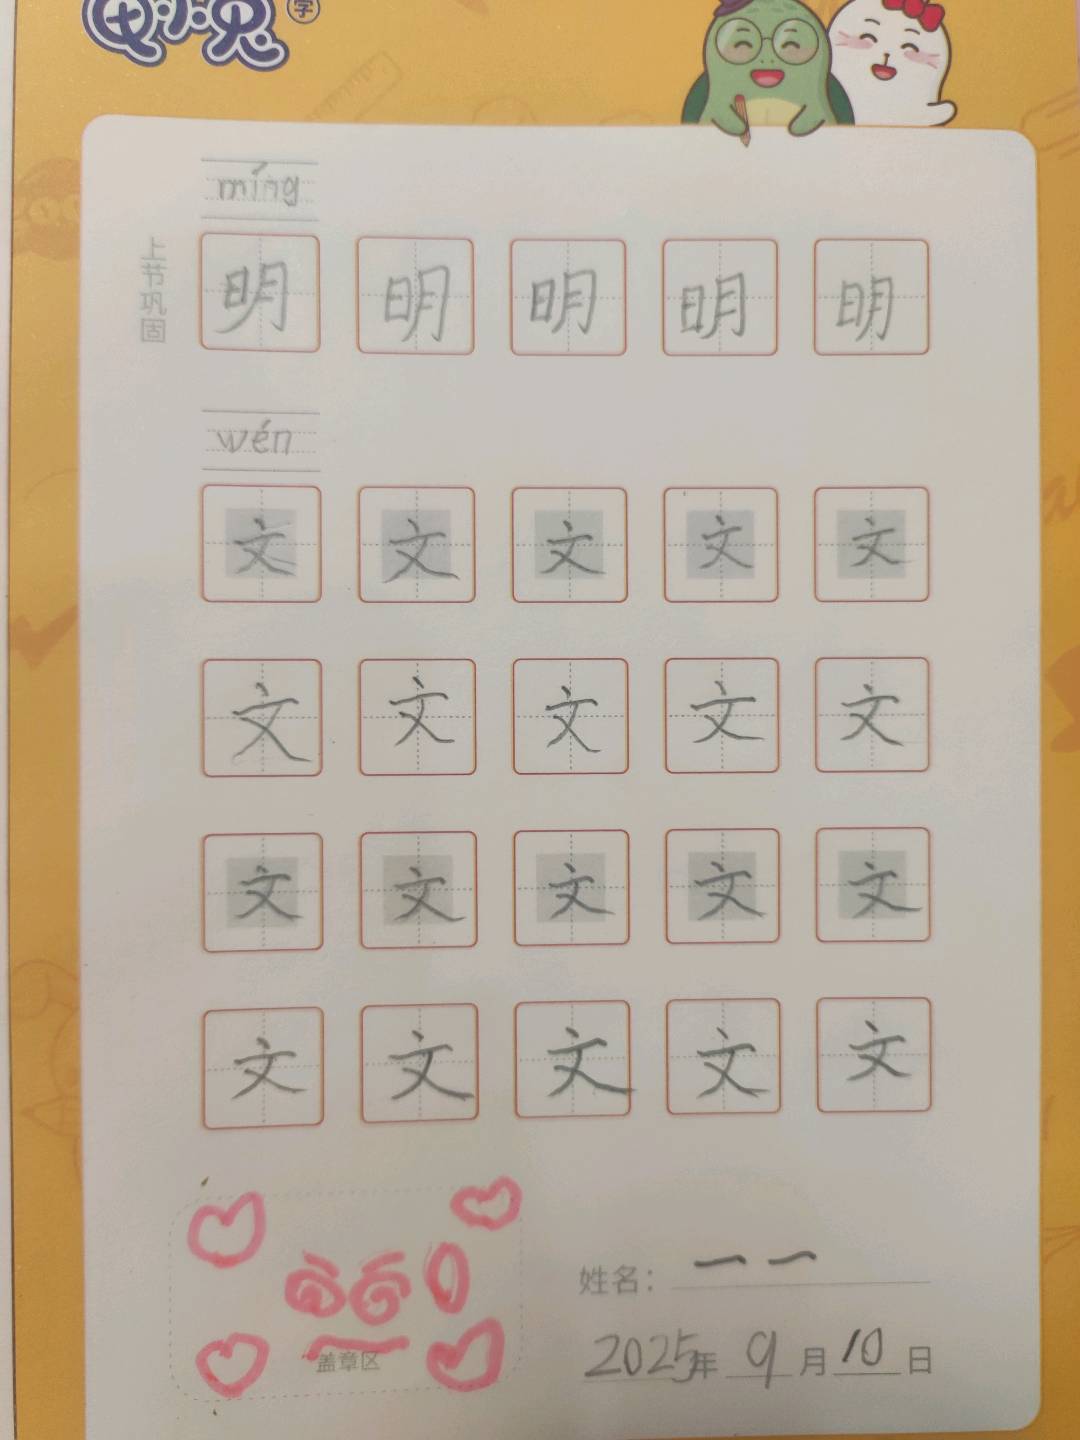 字
míng
上节巩固
明 明 明 明 明
wén
文 文 文 文 文
文 文 文 文 文
文 文 文 文 文
文 文 文 文 文
盖章区
姓名： 一 一
2025年 9 月 10 日